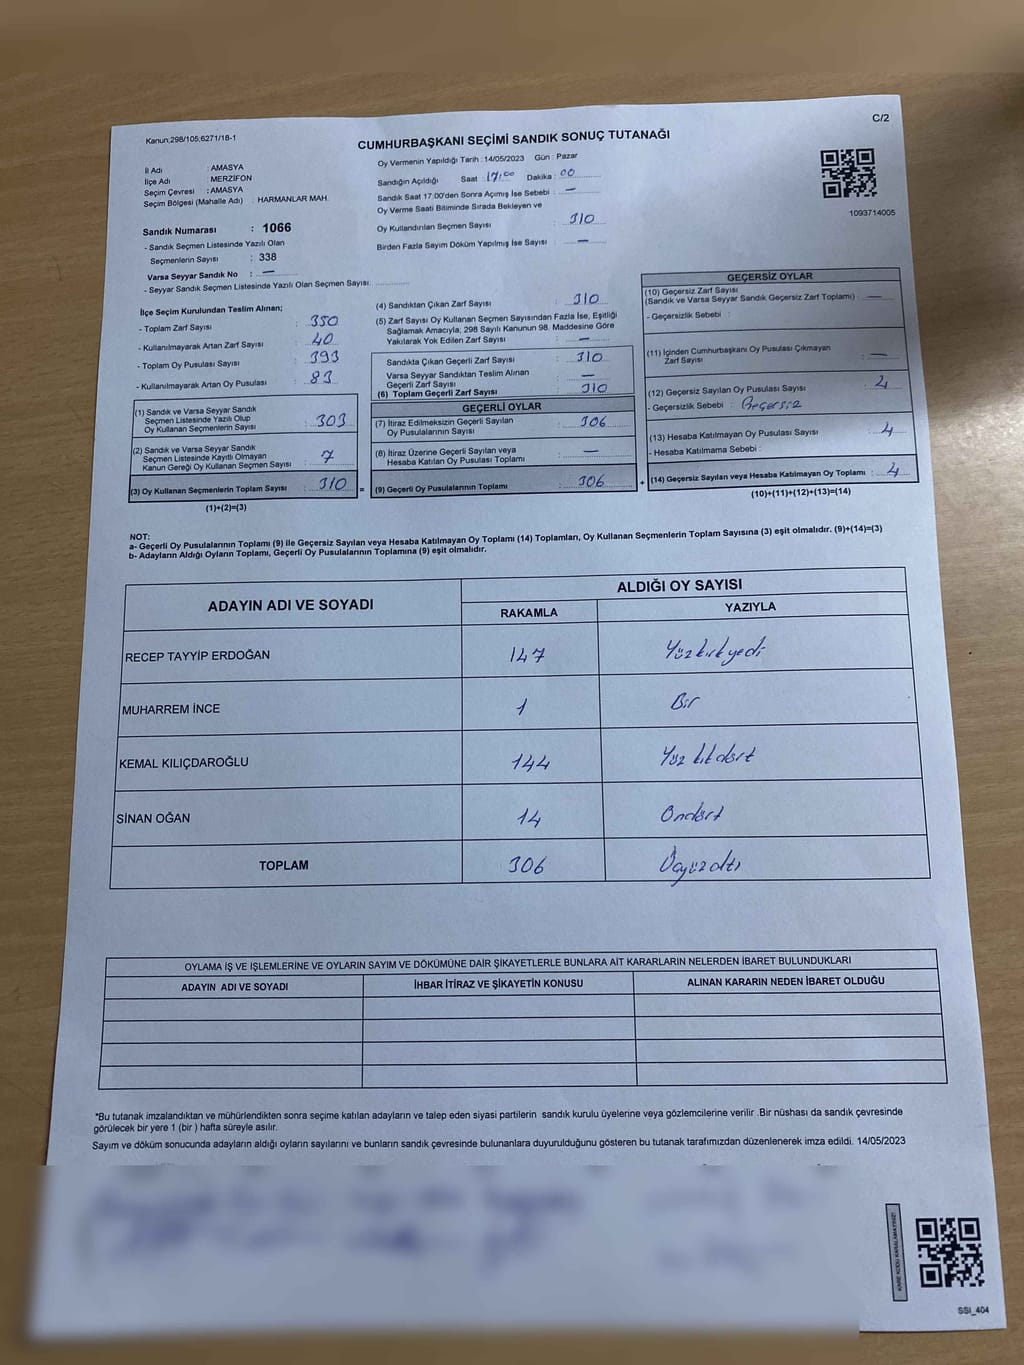 Kanun;298/105;6271/18-1
C/2
CUMHURBAŞKANI SEÇİMİ SANDIK SONUÇ TUTANAĞI
İl Adı : AMASYA
İlçe Adı MERZİFON
Seçim Çevresi : AMASYA
Seçim Bölgesi (Mahalle Adı) : HARMANLAR MAH.
Oy Vermenin Yapıldığı Tarih :14/05/2023 Gün : Pazar
Sandığın Açıldığı Saat : 17:00 Dakika : 00
Sandık Saat 17.00'den Sonra Açımış İse Sebebi : —
Oy Verme Saati Bitiminde Sırada Bekleyen ve
Oy Kullandırılan Seçmen Sayısı : 310
Birden Fazla Sayım Döküm Yapılmış İse Sayısı : —
1093714005
Sandık Numarası : 1066
- Sandık Seçmen Listesinde Yazılı Olan
Seçmenlerin Sayısı : 338
Varsa Seyyar Sandık No : —
- Seyyar Sandık Seçmen Listesinde Yazılı Olan Seçmen Sayısı
İlçe Seçim Kurulundan Teslim Alınan;
- Toplam Zarf Sayısı : 350
- Kullanılmayarak Artan Zarf Sayısı : 40
- Toplam Oy Pusulası Sayısı : 393
- Kullanılmayarak Artan Oy Pusulası : 83
(1) Sandık ve Varsa Seyyar Sandık
Seçmen Listesinde Yazılı Olup
Oy Kullanan Seçmenlerin Sayısı : 303
(2) Sandık ve Varsa Seyyar Sandık
Seçmen Listesinde Kayıtlı Olmayan
Kanun Gereği Oy Kullanan Seçmen Sayısı : 7
(3) Oy Kullanan Seçmenlerin Toplam Sayısı : 310 =
(1)+(2)=(3)
(4) Sandıktan Çıkan Zarf Sayısı : 310
(5) Zarf Sayısı Oy Kullanan Seçmen Sayısından Fazla İse, Eşitliği
Sağlamak Amacıyla; 298 Sayılı Kanunun 98. Maddesine Göre
Yakılarak Yok Edilen Zarf Sayısı : —
Sandıkta Çıkan Geçerli Zarf Sayısı : 310
Varsa Seyyar Sandıktan Teslim Alınan
Geçerli Zarf Sayısı : —
(6) Toplam Geçerli Zarf Sayısı : 310
GEÇERLİ OYLAR
(7) İtiraz Edilmeksizin Geçerli Sayılan
Oy Pusulalarının Sayısı : 306
(8) İtiraz Üzerine Geçerli Sayılan veya
Hesaba Katılan Oy Pusulası Toplamı : —
(9) Geçerli Oy Pusulalarının Toplamı : 306 +
GEÇERSİZ OYLAR
(10) Geçersiz Zarf Sayısı
(Sandık ve Varsa Seyyar Sandık Geçersiz Zarf Toplamı) : —
- Geçersizlik Sebebi :
(11) İçinden Cumhurbaşkanı Oy Pusulası Çıkmayan
Zarf Sayısı : —
(12) Geçersiz Sayılan Oy Pusulası Sayısı : 4
- Geçersizlik Sebebi : Geçersiz
(13) Hesaba Katılmayan Oy Pusulası Sayısı : 4
- Hesaba Katılmama Sebebi :
(14) Geçersiz Sayılan veya Hesaba Katılmayan Oy Toplamı : 4
(10)+(11)+(12)+(13)=(14)
NOT:
a- Geçerli Oy Pusulalarının Toplamı (9) ile Geçersiz Sayılan veya Hesaba Katılmayan Oy Toplamı (14) Toplamları, Oy Kullanan Seçmenlerin Toplam Sayısına (3) eşit olmalıdır. (9)+(14)=(3)
b- Adayların Aldığı Oyların Toplamı, Geçerli Oy Pusulalarının Toplamına (9) eşit olmalıdır.
ADAYIN ADI VE SOYADI ALDIĞI OY SAYISI
RAKAMLA YAZIYLA
RECEP TAYYİP ERDOĞAN 147 Yüzkırkyedi
MUHARREM İNCE 1 Bir
KEMAL KILIÇDAROĞLU 144 Yüz
SİNAN OĞAN 14 Ondört
TOPLAM 306 Üçyüzaltı
OYLAMA İŞ VE İŞLEMLERİNE VE OYLARIN SAYIM VE DÖKÜMÜNE DAİR ŞİKAYETLERLE BUNLARA AİT KARARLARIN NELERDEN İBARET BULUNDUKLARI
ADAYIN ADI VE SOYADI İHBAR İTİRAZ VE ŞİKAYETİN KONUSU ALINAN KARARIN NEDEN İBARET OLDUĞU
*Bu tutanak imzalandıktan ve mühürlendikten sonra seçime katılan adayların ve talep eden siyasi partilerin sandık kurulu üyelerine veya gözlemcilerine verilir .Bir nüshası da sandık çevresinde
görülecek bir yere 1 (bir ) hafta süreyle asılır.
Sayım ve döküm sonucunda adayların aldığı oyların sayılarını ve bunların sandık çevresinde bulunanlara duyurulduğunu gösteren bu tutanak tarafımızdan düzenlenerek imza edildi. 14/05/2023
KARE KODU KARALAMAYINIZ!
SSI_404